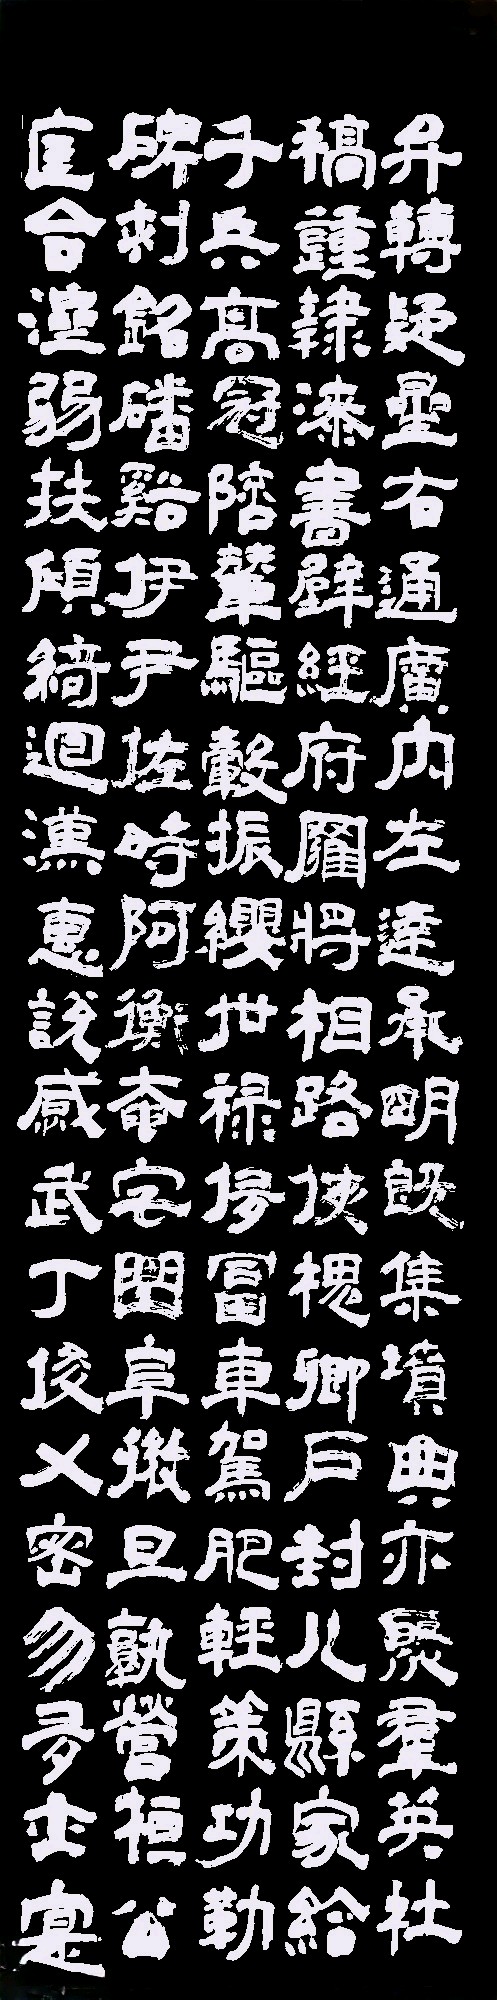 弁轉疑星右通廣內左達承明既集墳典亦聚羣英杜
稿鍾隸漆書壁經府羅將相路俠槐卿戶封八縣家給
千兵高冠陪輦驅轂振纓世祿侈富車駕肥輕策功勒
碑刻銘磻谿伊尹佐時阿衡奄宅曲阜微旦孰營桓公
匡合濟弱扶傾綺迴漢惠說感武丁俊乂密勿多士寔